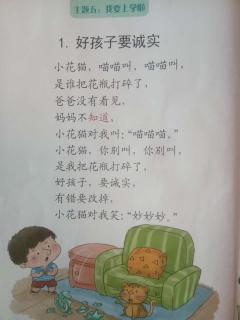 主题五：我要上学啦
1. 好孩子要诚实
小花猫，喵喵叫，喵喵叫，
是谁把花瓶打碎了，
爸爸没有看见，
妈妈不知道，
小花猫对我叫：“喵喵喵。”
小花猫，你别叫，你别叫，
是我把花瓶打碎了，
好孩子，要诚实，
有错要改掉，
小花猫对我笑：“妙妙妙。”